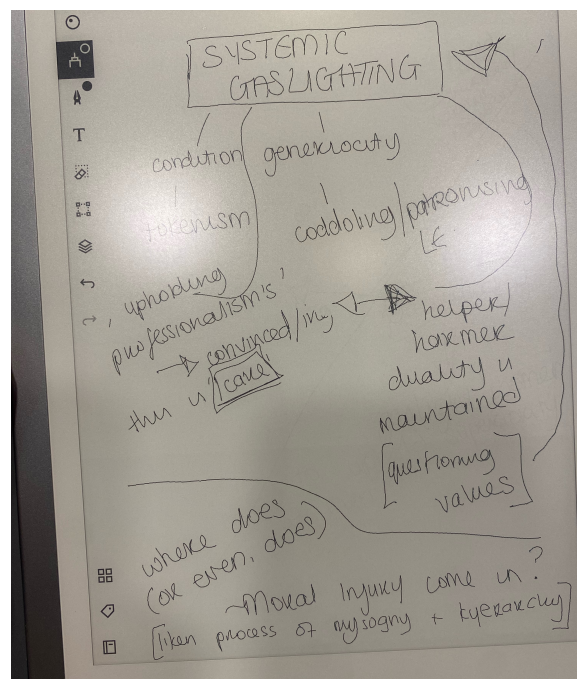 SYSTEMIC
GASLIGHTING
condition
generiocity
tokenism
coddoling/patronising
'upholding
professionalism's'
convinced/ing
this is 'care'
helper/
harmer
duality is
maintained
[questioning
values]
T
where does
(or even, does)
~Moral Injury come in?
[liken process of mysogny + kyerarchy]